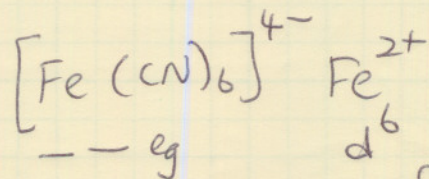 [Fe(CN)₆]⁴⁻ Fe²⁺
— — eg d⁶